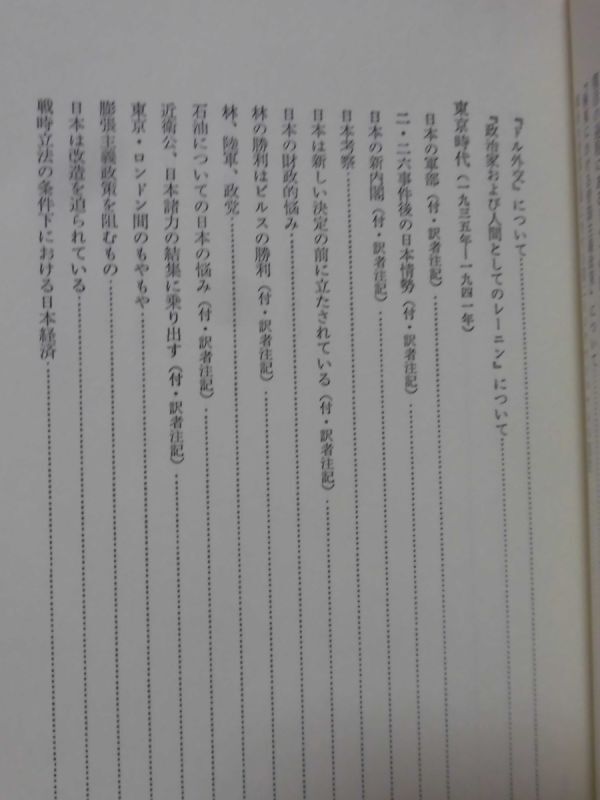 『ドル外交』について
『政治家および人間としてのレーニン』について
東京時代(一九三五年―一九四一年)
日本の軍部(付・訳者注記)
二・二六事件後の日本情勢(付・訳者注記)
日本の新内閣(付・訳者注記)
日本考察
日本は新しい決定の前に立たされている(付・訳者注記)
日本の財政的悩み
林の勝利はビルスの勝利(付・訳者注記)
林、陸軍、政党
石油についての日本の悩み(付・訳者注記)
近衛公、日本諸力の結集に乗り出す(付・訳者注記)
東京・ロンドン間のもやもや
膨張主義政策を阻むもの
日本は改造を迫られている
戦時立法の条件下における日本経済